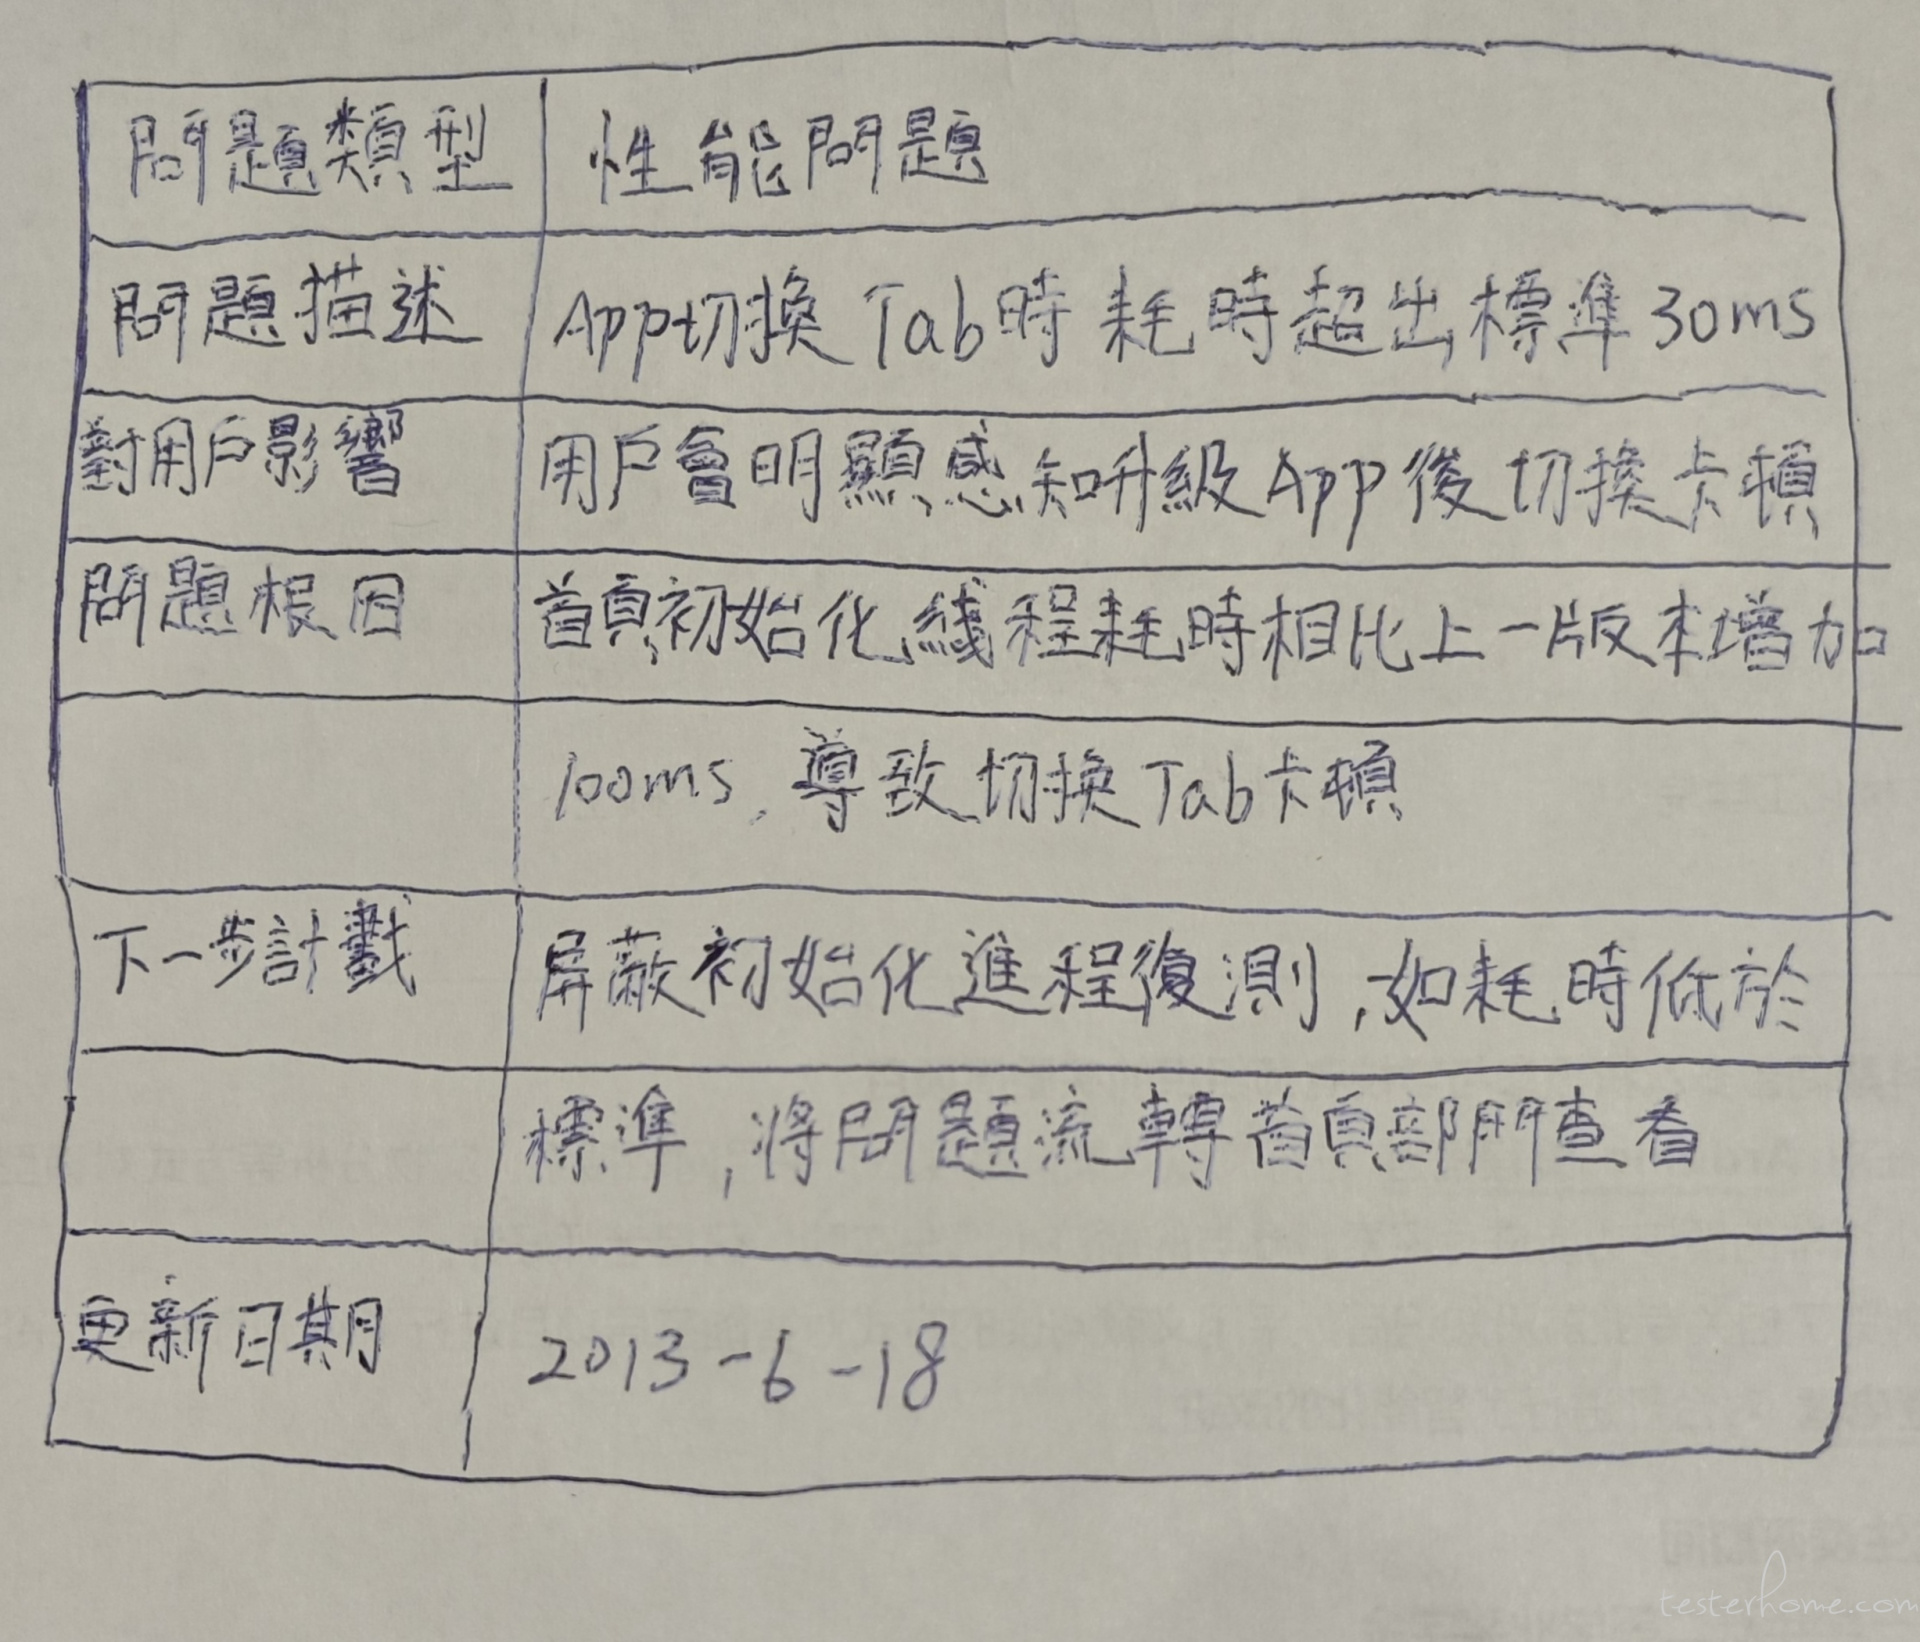 問題類型 性能問題
問題描述 App切換Tab時耗時超出標準30ms
對用戶影響 用戶會明顯感知升級App後切換卡頓
問題根因 首頁初始化線程耗時相比上一版本增加
100ms,導致切換Tab卡頓
下一步計劃 屏蔽初始化進程復測,如耗時低於
標準,將問題流轉首頁部門查看
更新日期 2013-6-18
testerhome.com